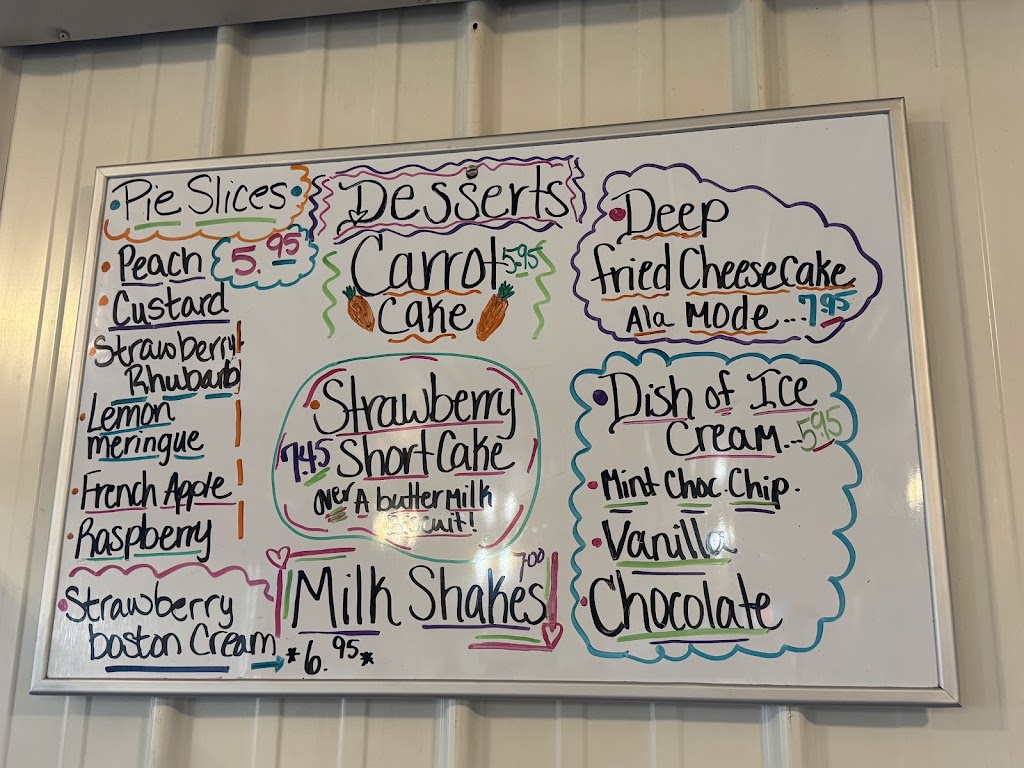 Pie Slices
5.95
Peach
Custard
Strawberry
Rhubarb
Lemon
meringue
French Apple
Raspberry
Strawberry
boston Cream
*6.95*
Desserts
Carrot 5.95
Cake
Strawberry
7.45 Short Cake
over A butter Milk
Biscuit!
7.00
Milk Shakes
Deep
fried Cheesecake
Ala Mode...7.95
Dish of Ice
Cream...5.95
Mint Choc. Chip.
Vanilla
Chocolate